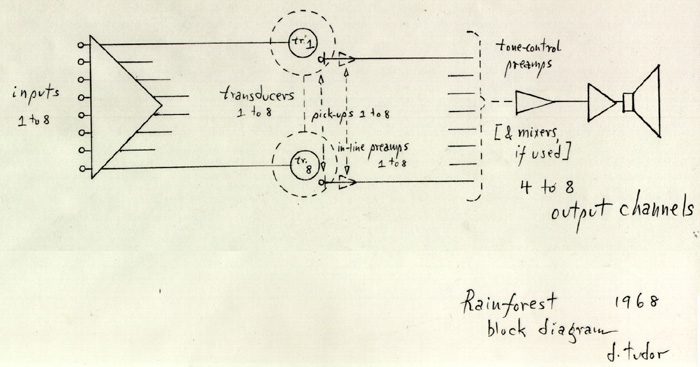 inputs
1 to 8
transducers
1 to 8
tr. 1
pick-ups 1 to 8
in-line preamps
1 to 8
tr.
8
tone-control
preamps
[& mixers,
if used]
4 to 8
output channels
Rainforest 1968
block diagram
d. tudor